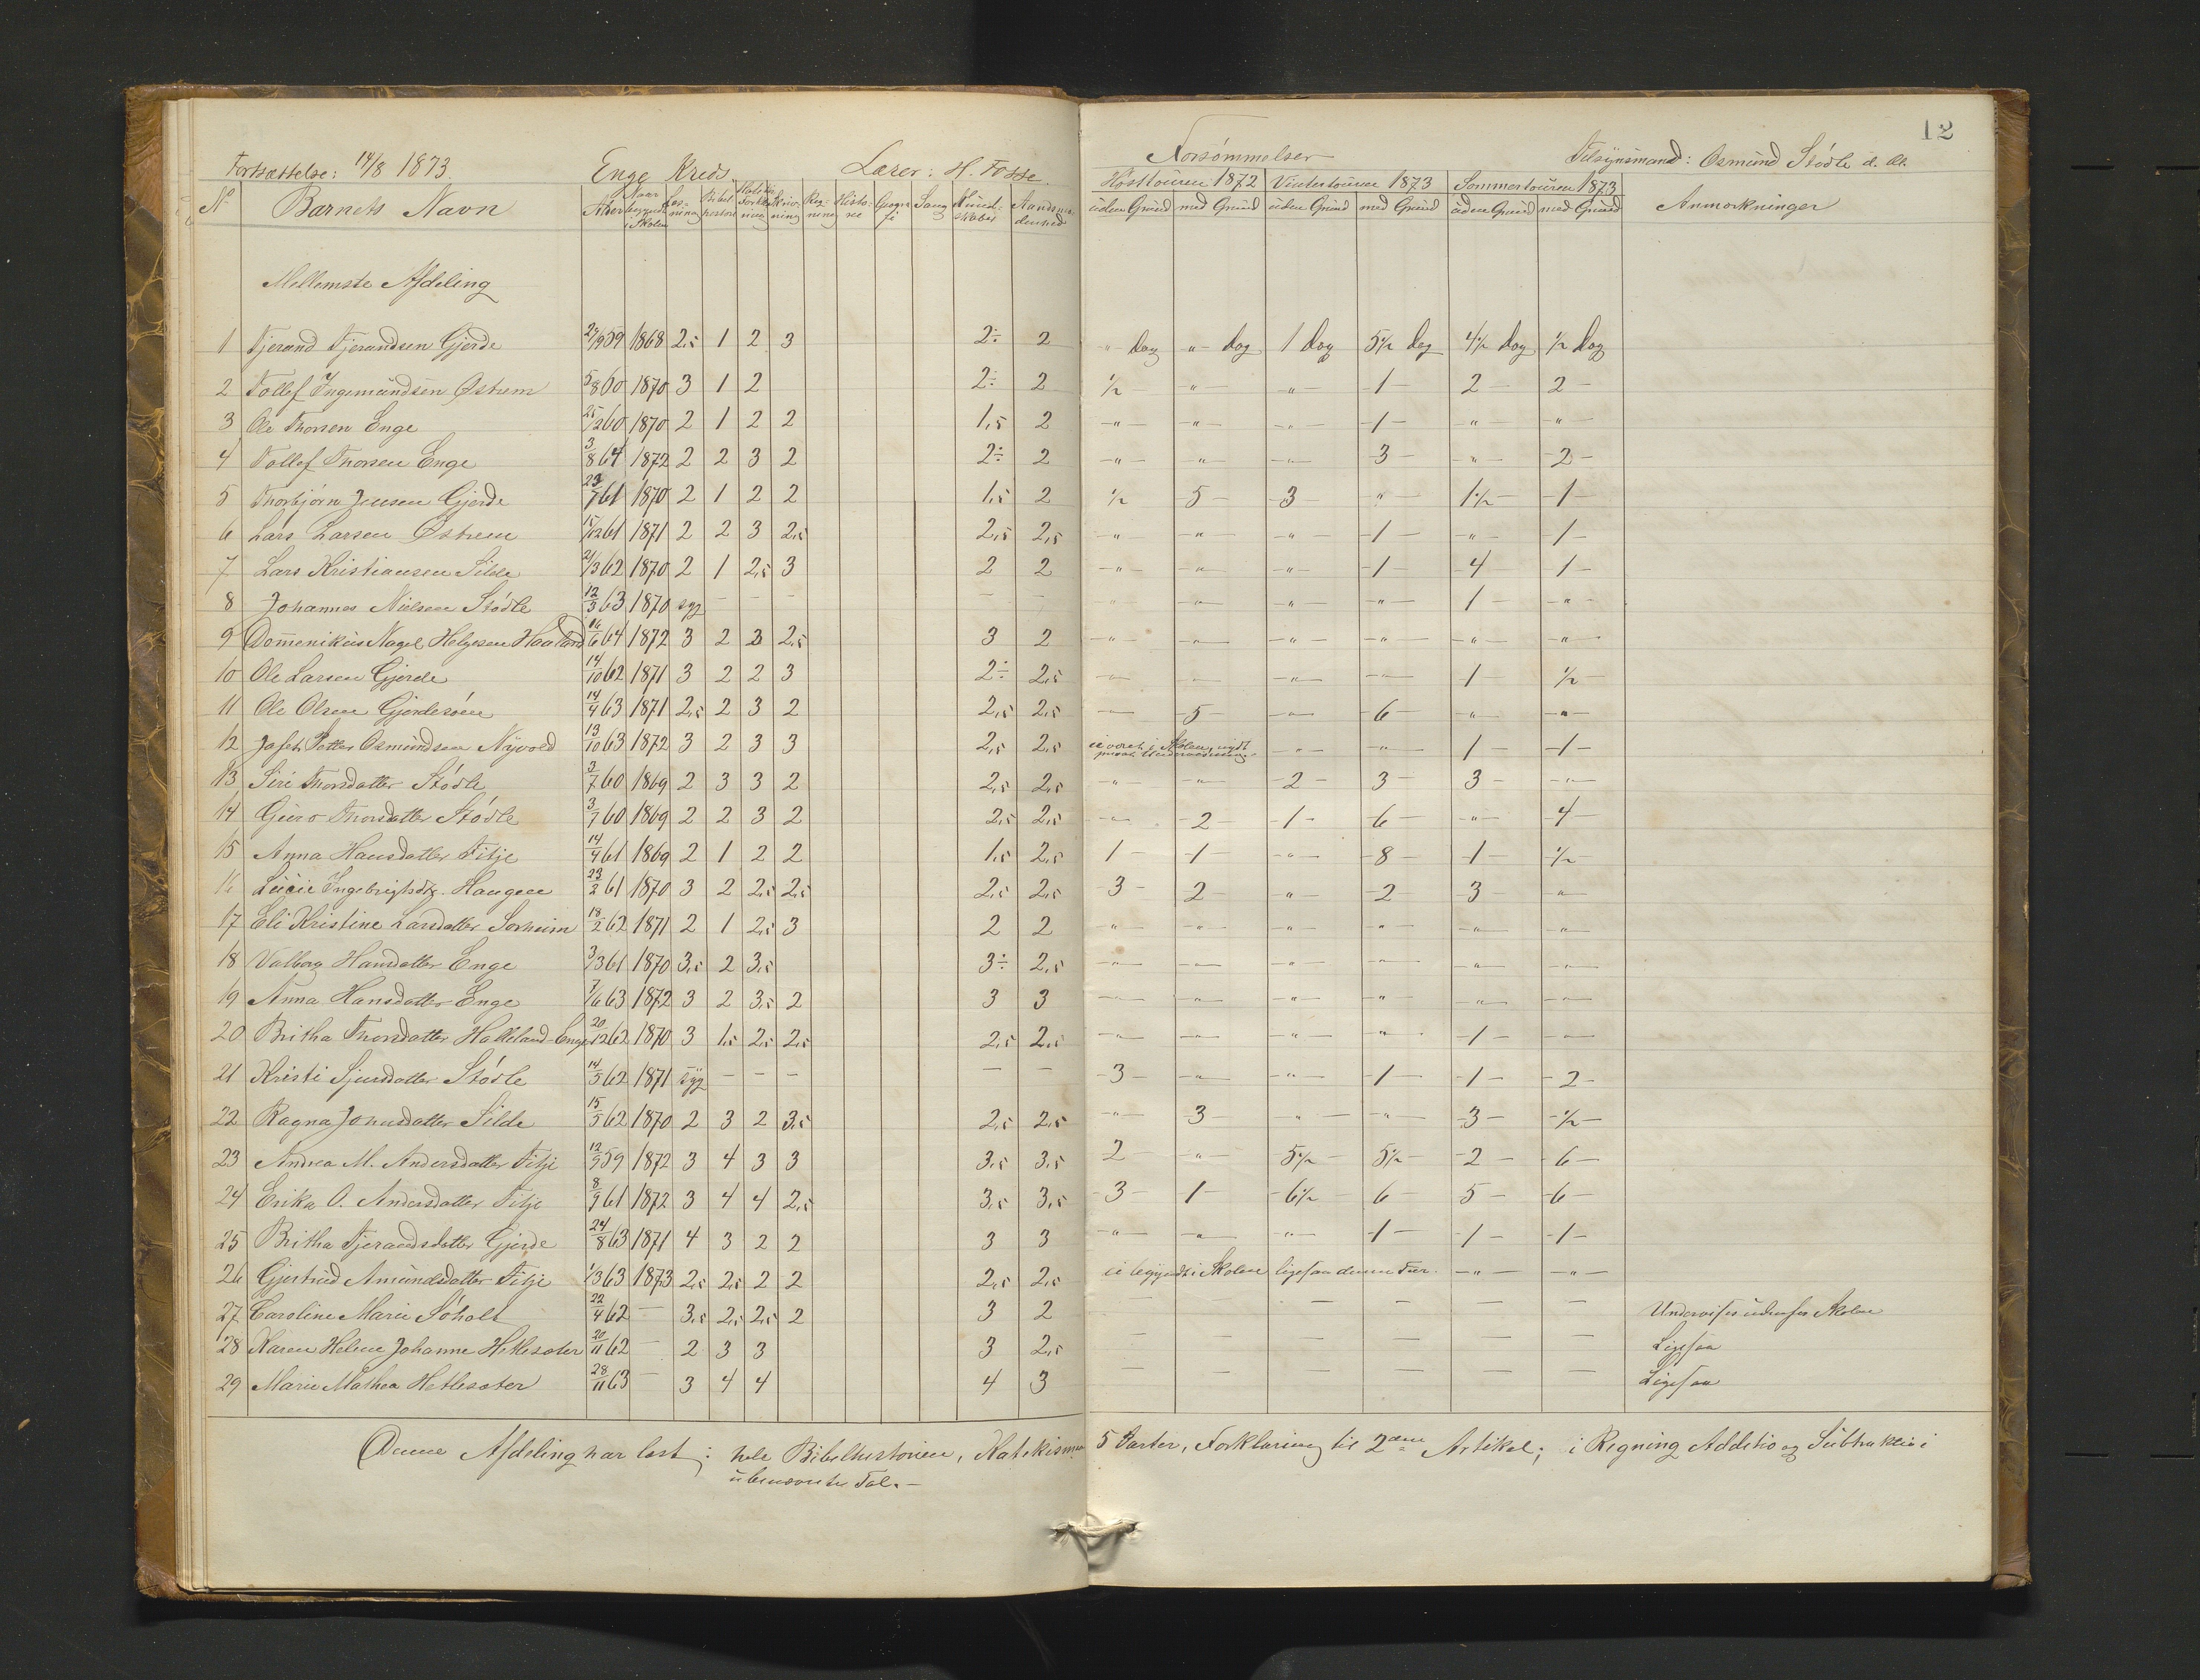 12
Fortsættelse: 14/8 1873. Enge Kreds. Lærer: H. Fosse. Forsømmelser Tilsynsmand: Osmund Stødle d. æl.
No Barnets Navn Alder Naar begyndt i Skolen Læsning Bibelhistorie Skrivning Regning Historie Geografi Sang Kundskaber Høsttouren 1872 Vintertouren 1873 Sommertouren 1873 Anmærkninger
uden Grund med Grund uden Grund med Grund uden Grund med Grund
Mellemste Afdeling
1 Tjerand Tjerandsen Gjerde 29/9 59 1868 2,5 1 2 3 2÷ 2 " dag " dag 1 dag 5½ dag 4½ dag ½ dag
2 Tollef Ingemundsen Østrem 5/8 60 1870 3 1 2 2÷ 2 ½ " — " — 1 — 2 — 2 —
3 Ole Thorsen Enge 25/2 60 1870 2 1 2 2 1,5 2 — " — — " — — " — 1 — — " — — " —
4 Tollef Thorsen Enge 3/8 64 1872 2 2 3 2 2÷ 2 — " — — " — — " — 3 — — " — 2 —
5 Thorbjørn Jensen Gjerde 23/7 61 1870 2 1 2 2 1,5 2 ½ 5 — 3 — — " — 1½ — 1 —
6 Lars Larsen Østrem 15/12 61 1871 2 2 3 2,5 2,5 2,5 — " — — " — — " — 1 — — " — 1 —
7 Lars Kristiansen Silde 21/3 62 1870 2 1 2,5 3 2 2 — " — — " — — " — 1 — 4 — 1 —
8 Johannes Nielsen Stødle 12/3 63 1870 syg — — — — — — " — — " — — " — — " — 1 — — " —
9 Domenikus Nagel Helgesen Haaland 16/6 64 1872 3 2 3 2,5 3 2 — " — — " — — " — — " — — " — — " —
10 Ole Larsen Gjerde 14/10 62 1871 3 2 2 3 2÷ 2,5 — " — — " — — " — — " — 1 — ½ —
11 Ole Olsen Gjerdesøen 14/4 63 1871 2,5 2 3 2 2,5 2,5 — " — 5 — — " — 6 — — " — — " —
12 Jafet Petter Osmundsen Nyvold 13/10 63 1872 3 2 3 3 2,5 2,5 ei været i Skolen, nydt privat Underviisning — " — — " — 1 — 1 —
13 Siri Thorsdatter Stødle 3/7 60 1869 2 3 3 2 2,5 2,5 — " — — " — 2 — 3 — 3 — — " —
14 Guro Thorsdatter Stødle 3/7 60 1869 2 2 3 2 2,5 2,5 — " — 2 — 1 — 6 — — " — 4
15 Anna Hansdatter Fitje 14/4 61 1869 2 1 2 2 1,5 2,5 1 — 1 — — " — 8 — 1 — ½ —
16 Lucie Ingebrigtsdtr. Haugen 23/2 61 1870 3 2 2,5 2,5 2,5 2,5 3 — 2 — — " — 2 — 3 — — " —
17 Eli Kristine Larsdatter Sørheim 18/2 62 1871 2 1 2,5 3 2 2 — " — — " — — " — — " — — " — — " —
18 Valborg Hansdatter Enge 3/3 61 1870 3,5 2 3,5 3÷ 2,5 — " — — " — — " — — " — — " — — " —
19 Anna Hansdatter Enge 7/6 63 1872 3 2 3,5 2 3 3 — " — — " — — " — — " — — " — — " —
20 Britha Thorsdatter Halleland-Enge 20/12 62 1870 3 1,5 2,5 2,5 2,5 2,5 — " — — " — — " — — " — 1 — — " —
21 Kristi Sjursdatter Stødle 14/5 62 1871 syg — — — — — 3 — — " — — " — 1 — 1 — 2 —
22 Ragna Jonusdatter Silde 15/5 62 1870 2 3 2 3,5 2,5 2,5 — " — 3 — — " — — " — 3 — ½ —
23 Andrea M. Andersdatter Fitje 12/9 59 1872 3 4 3 3 3,5 3,5 2 — — " — 5½ — 5½ — 2 — 6 —
24 Erika O. Andersdatter Fitje 8/9 61 1872 3 4 4 2,5 3,5 3,5 3 — 1 — 6½ — 6 — 5 — 6 —
25 Britha Tjerandsdatter Gjerde 24/8 63 1871 4 3 2 2 3 3 — " — — " — — " — 1 — 1 — 1 —
26 Gjertrud Amundsdatter Fitje 1/3 63 1873 2,5 2,5 2 2 2,5 2,5 ei begyndt i Skolen ligesaa denne Tur. — " — — " —
27 Caroline Marie Søholt 22/4 62 — 3,5 2,5 2,5 2 3 2 — — — — — — Undervises udenfor Skolen
28 Karen Helene Johanne Hetlesæter 20/11 62 — 2 3 3 3 2,5 — — — — — — Ligesaa
29 Marie Mathea Hetlesæter 28/11 63 — 3 4 4 4 3 — — — — — — Ligesaa
Denne Afdeling har læst: hele Bibelhistorien, Katekismen 5 Parter, Forklaring til 2den Artikel; i Regning Additio og Subtraktio i
ubenævnte Tal. —